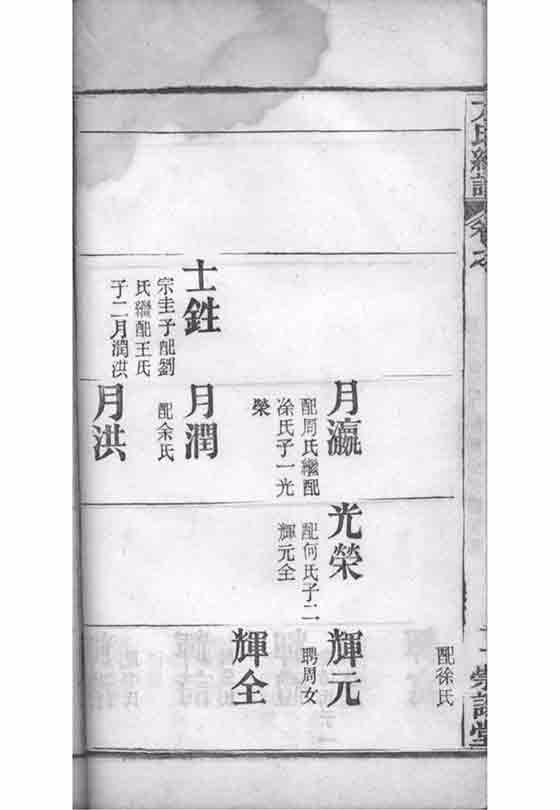 氏續譜
卷之
榮譜堂
配徐氏
月瀛
配周氏繼配
涂氏子一光
榮
光榮
配何氏子二
輝元全
輝元
聘周女
輝全
士甡
宗圭子配劉
氏繼配王氏
子二月潤洪
月潤
配余氏
月洪